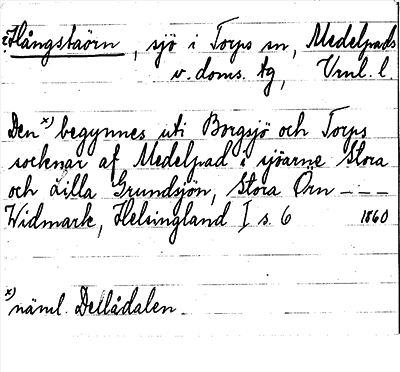 Hångstaörn, sjö i Torps sn, Medelpads
v. doms. tg, Vrnl. l.
Den x) begynnes uti Borgsjö och Torps
socknar af Medelpad i sjöarne Stora
och Lilla Grundsjön, Stora Örn - - -
Widmark, Helsingland I s. 6 1860
x) näml. Dellådalen.